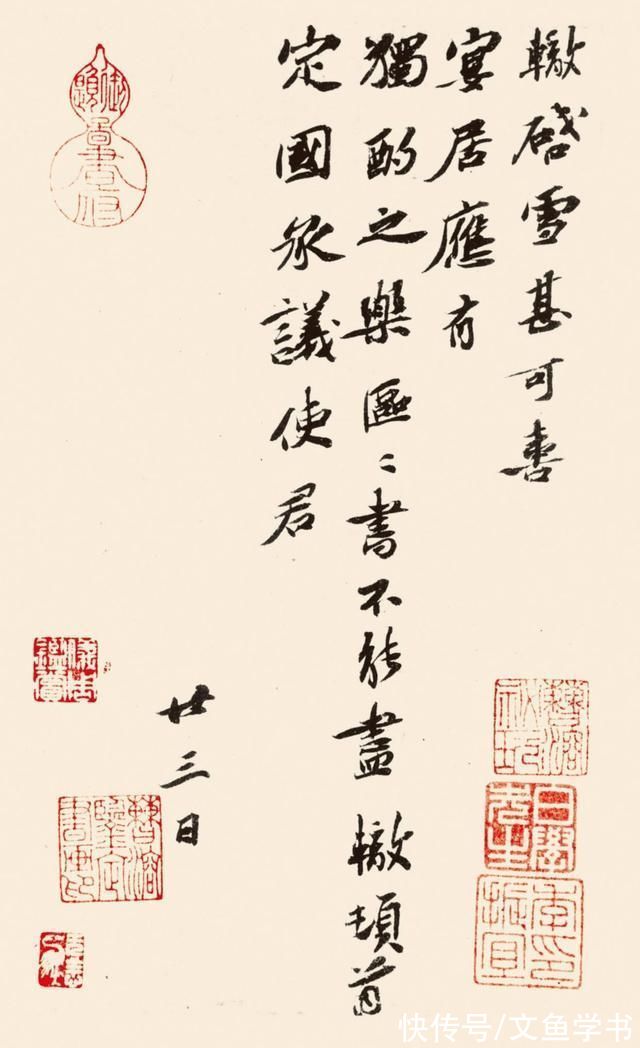 轍啓雪甚可喜
宴居應有
獨酌之樂區〻書不能盡 轍頓首
定國承議使君
廿三日
季印振宜
快传号/文鱼学书